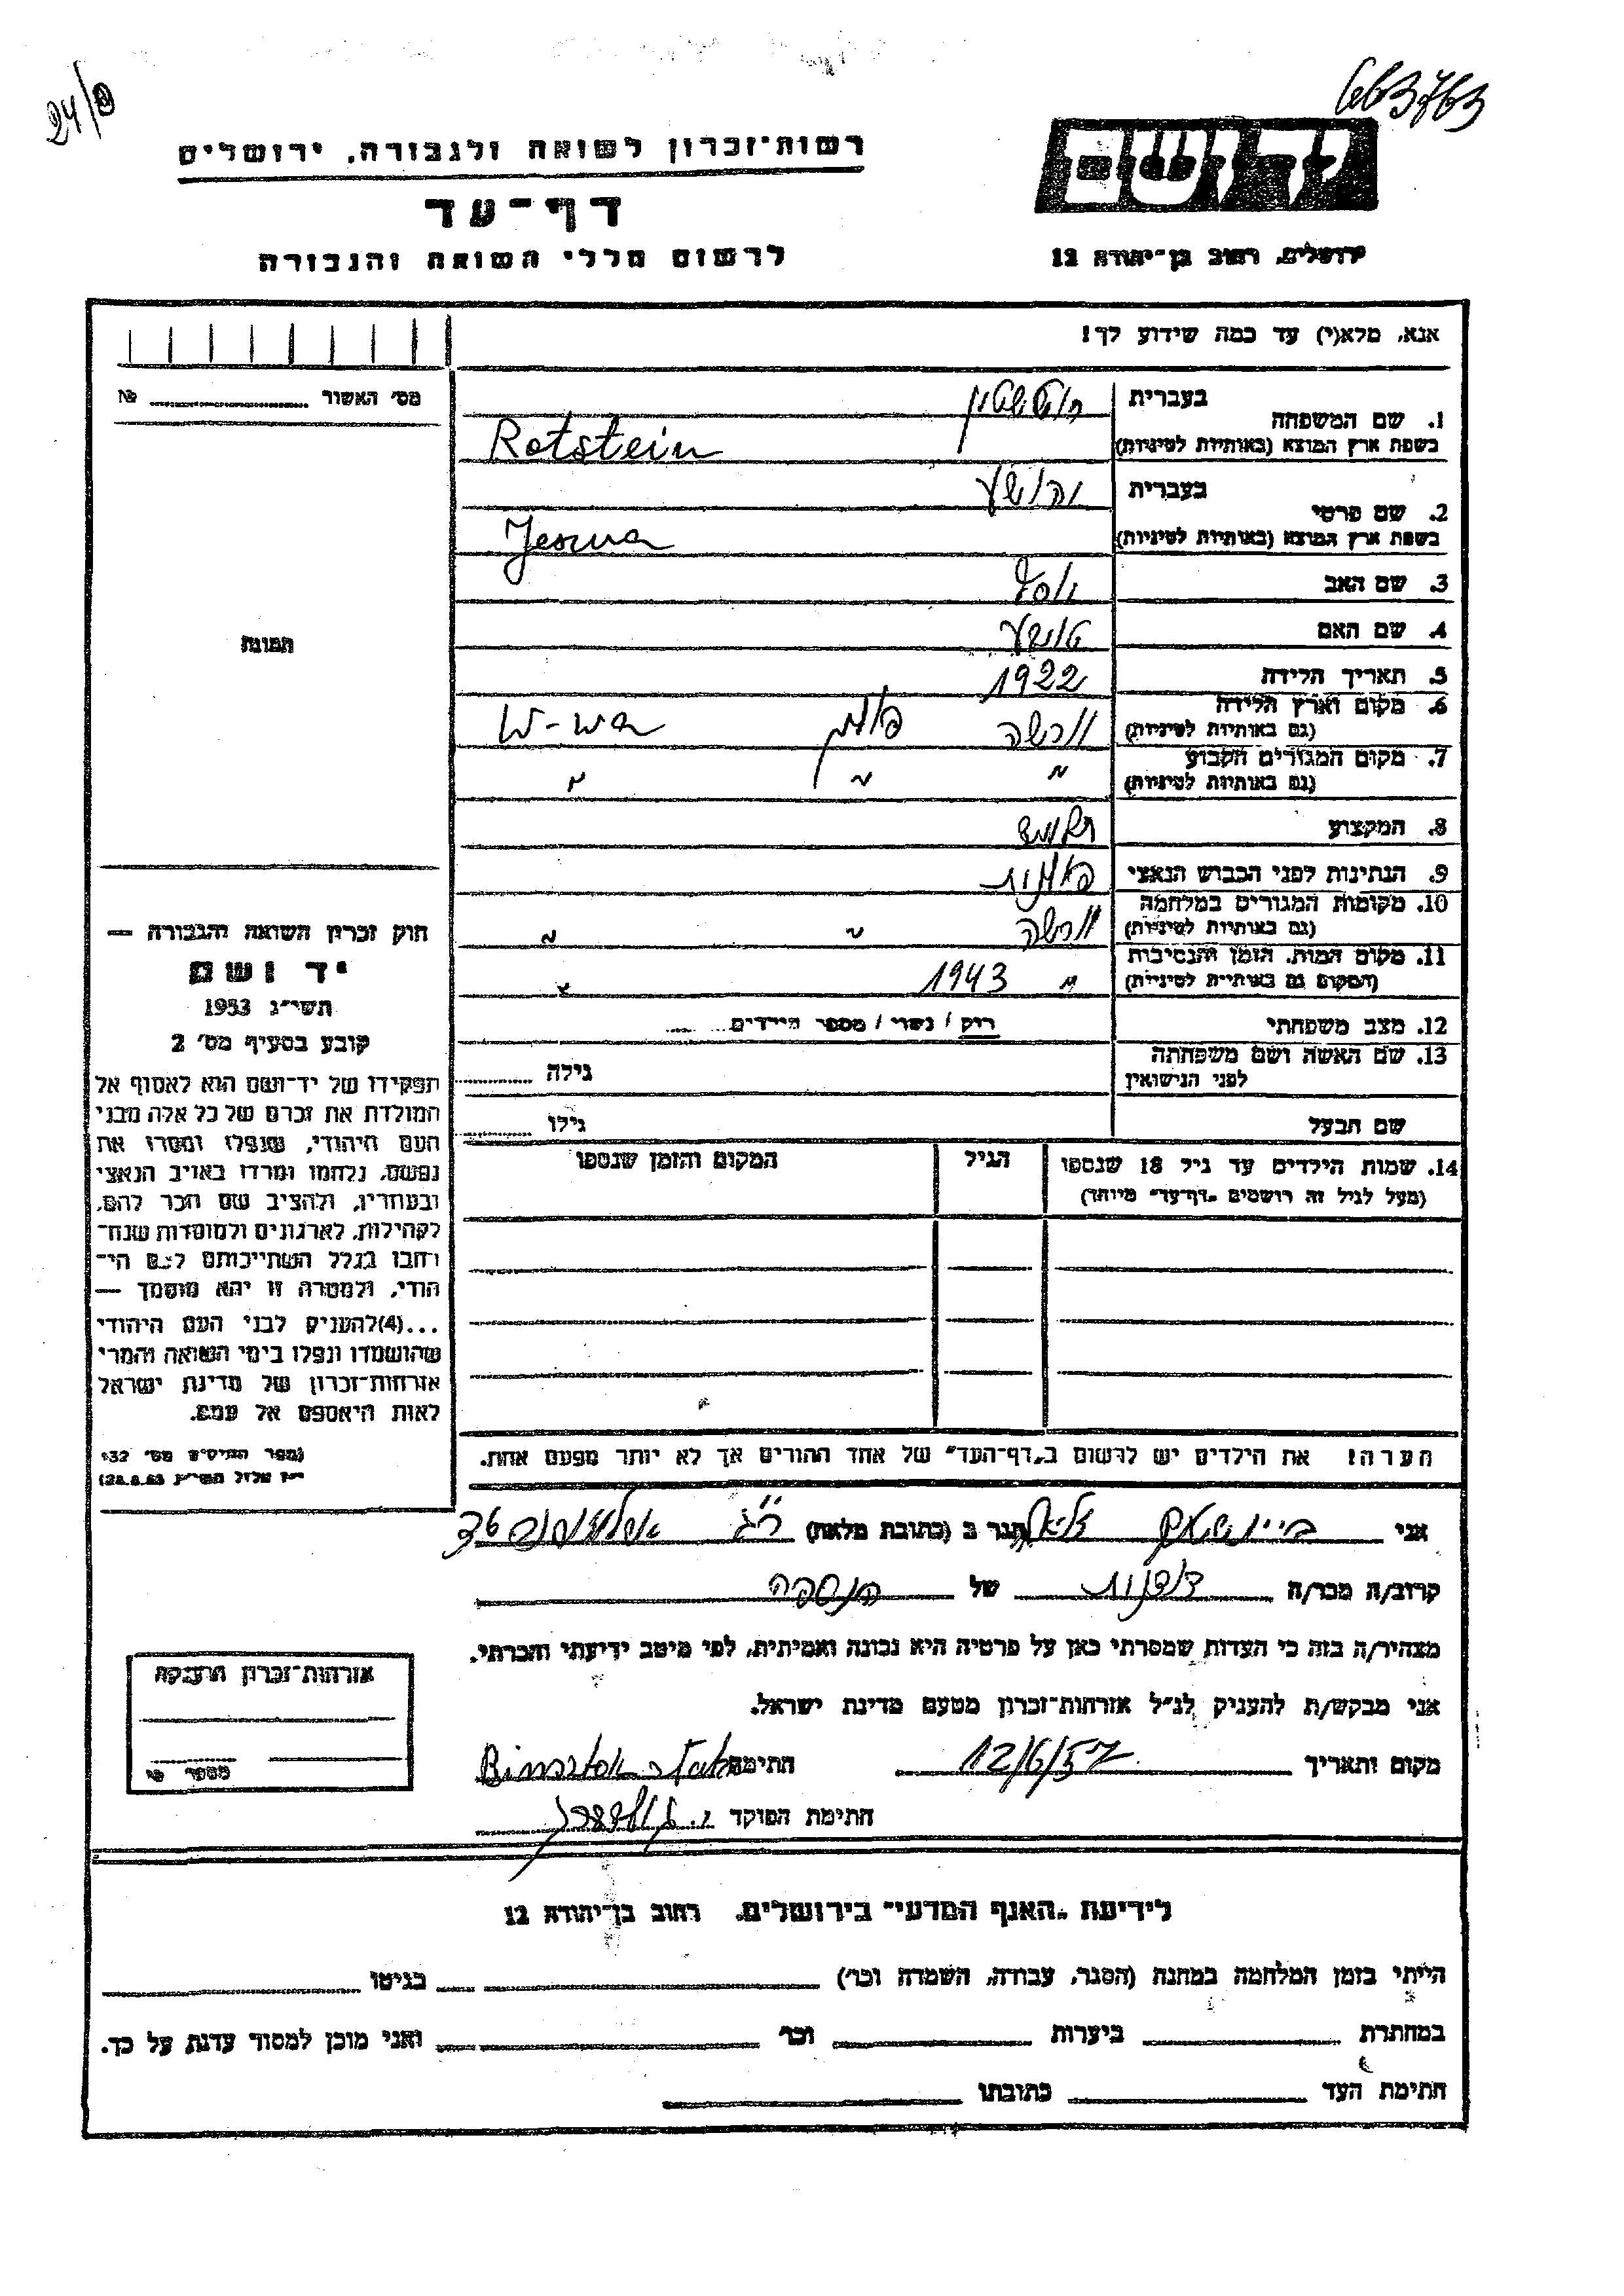 663763
24/
רשות־זכרון לשואה ולגבורה, ירושלים
דף־עד
לרשום חללי השואה והגבורה
ירושלים, רחוב בן־יהודה 12
אנא, מלא(י) עד כמה שידוע לך!
מס׳ האשור № 
1. שם המשפחה
בעברית רוטשטיין
בשפת ארץ המוצא (באותיות לטיניות) Rotstein
2. שם פרטי
בעברית יהושע
בשפת ארץ המוצא (באותיות לטיניות) Jesua
3. שם האב יוסף
4. שם האם טושע
5. תאריך הלידה 1922
6. מקום וארץ הלידה (גם באותיות לטיניות) וורשה פולין W-wa
7. מקום המגורים הקבוע (גם באותיות לטיניות) " " "
8. המקצוע
9. הנתינות לפני הכבוש הנאצי פולנית
10. מקומות המגורים במלחמה (גם באותיות לטיניות) וורשה " "
11. מקום המות, הזמן והנסיבות (המקום גם באותיות לטיניות) " 1943 "
12. מצב משפחתי רוק / נשוי / מספר הילדים
13. שם האשה ושם משפחתה לפני הנישואין גילה
שם הבעל גילו
14. שמות הילדים עד גיל 18 שנספו
(מעל לגיל זה רושמים "דף־עד" מיוחד)
הגיל
המקום והזמן שנספו
הערה! את הילדים יש לרשום ב"דף־העד" של אחד ההורים אך לא יותר מפעם אחת.
תמונה
חוק זכרון השואה והגבורה —
יד ושם
תשי״ג 1953
קובע בסעיף מס׳ 2
תפקידו של יד־ושם הוא לאסוף אל
המולדת את זכרם של כל אלה מבני
העם היהודי, שנפלו ומסרו את
נפשם, נלחמו ומרדו באויב הנאצי
ובעוזריו, ולהציב שם וזכר להם,
לקהילות, לארגונים ולמוסדות שנח־
רחבו בגלל השתייכותם לעם הי־
הודי, ולמטרה זו יהא מוסמך —
...(4)להעניק לבני העם היהודי
שהושמדו ונפלו בימי השואה והמרי
אזרחות־זכרון של מדינת ישראל
לאות היאספם אל עמם.
(ספר החוקים מס׳ 132
י״ז אלול תשי״ג 28.8.53)
אני ביינושטוק הגר ב (כתובת מלאה) ר״ג
קרוב/ה מכר/ה של הנספה
מצהיר/ה בזה כי העדות שמסרתי כאן על פרטיה היא נכונה ואמיתית, לפי מיטב ידיעתי והכרתי.
אני מבקש/ת להעניק לנ״ל אזרחות־זכרון מטעם מדינת ישראל.
מקום ותאריך 12/6/57 חתימה
חתימת הפוקד
אזרחות־זכרון הוענקה
מספר
לידיעת "האגף המדעי" בירושלים, רחוב בן־יהודה 12
הייתי בזמן המלחמה במחנה (הסגר, עבודה, השמדה וכו׳) בגיטו
במחתרת ביערות וכו׳ ואני מוכן למסור עדות על כך.
חתימת העד כתובתו